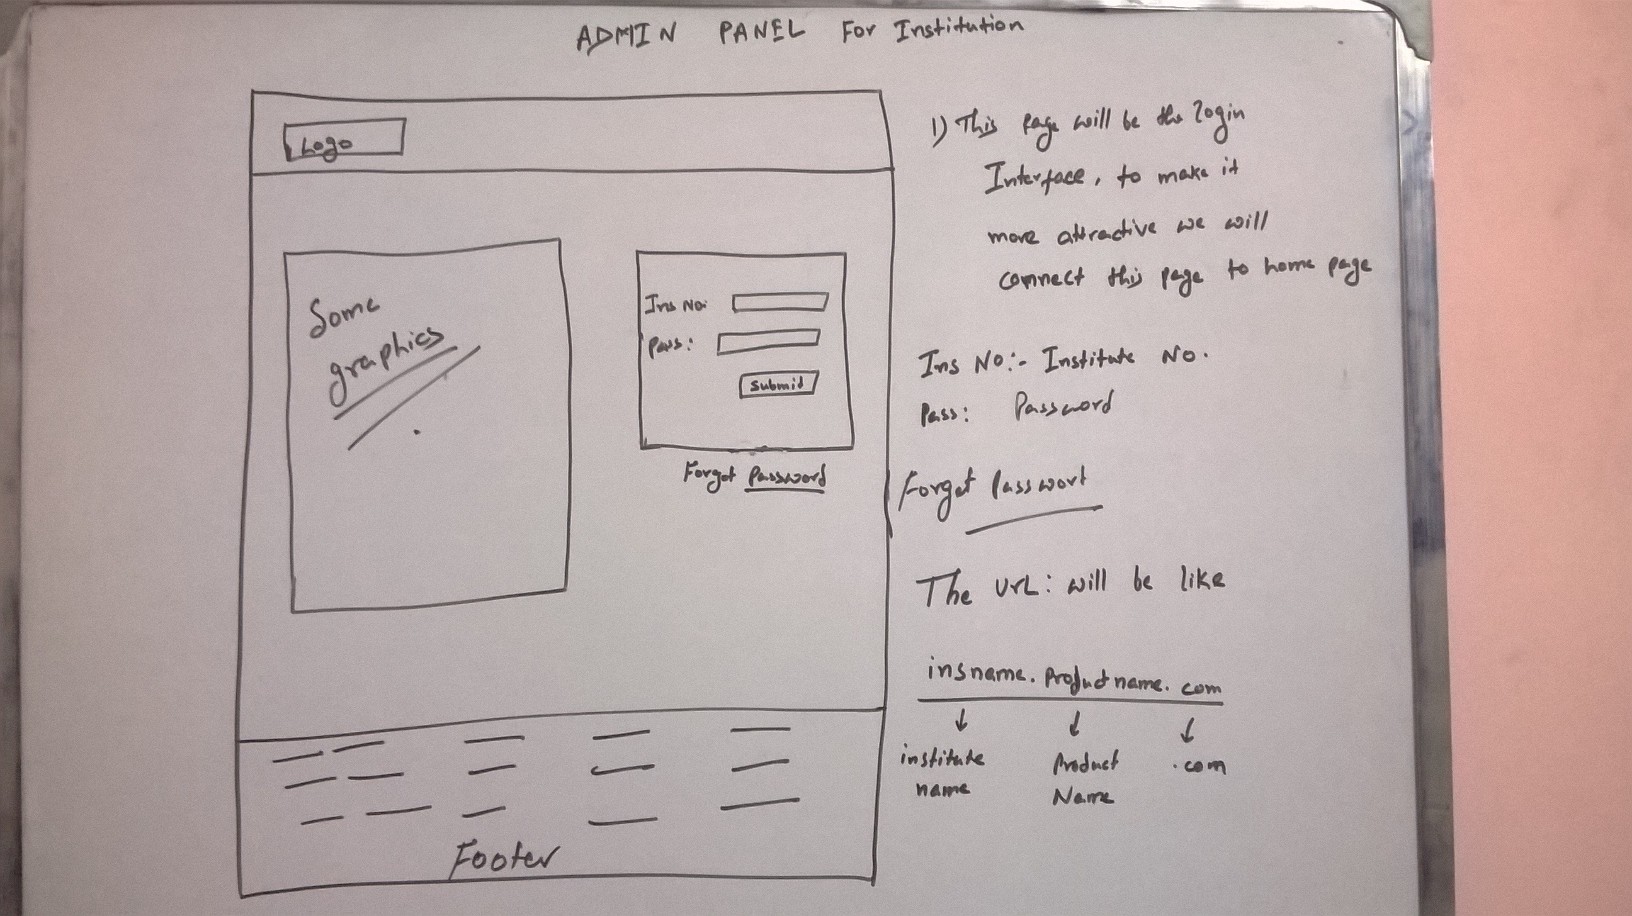 ADMIN PANEL For Institution
Logo
Some
graphics
Ins No:
Pass:
Submit
Forgot Password
Footer
1) This page will be the login
Interface, to make it
more attractive we will
connect this page to home page
Ins No:- Institute No.
Pass: Password
Forgot Passwort
The UrL: will be like
insname. Productname. com
institute
name
Product
Name
.com